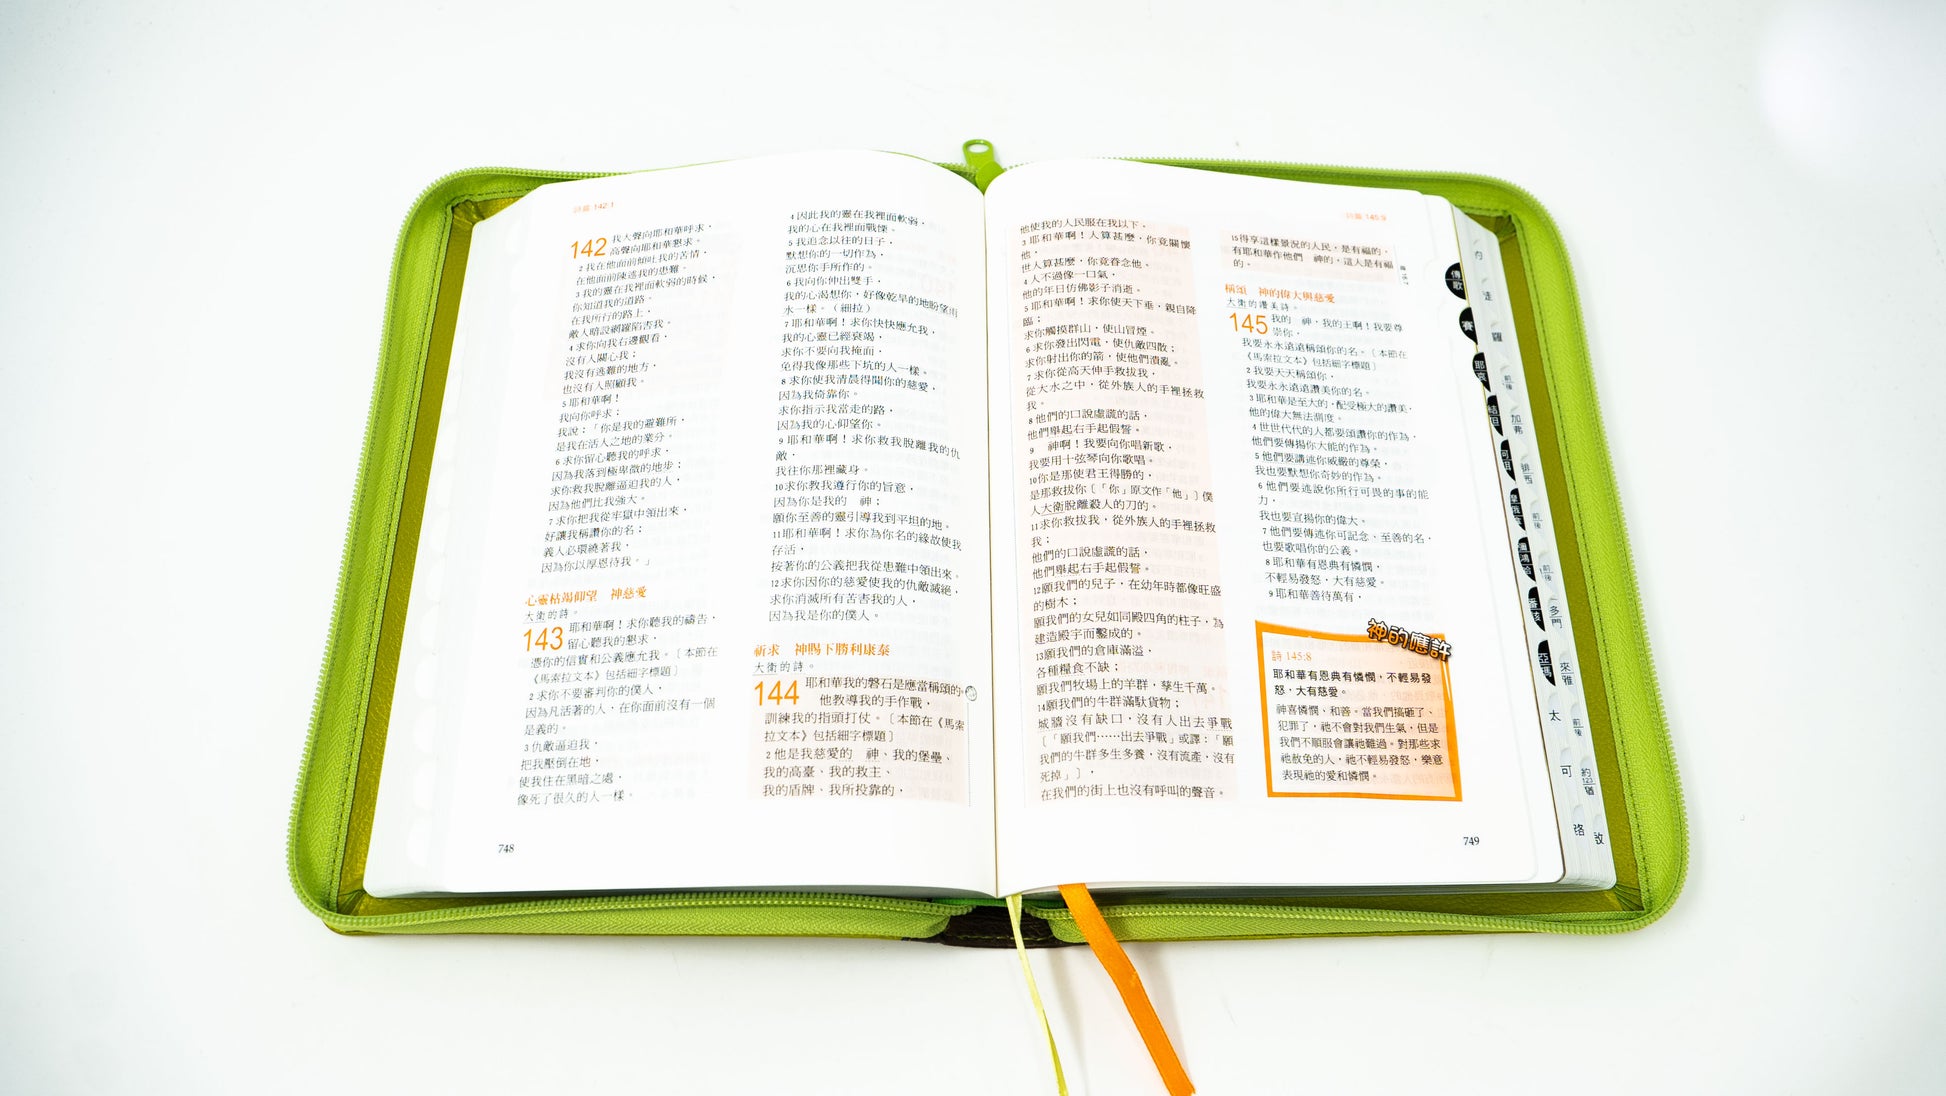 詩篇 142:1
142 我大聲向耶和華呼求，
高聲向耶和華懇求。
2 我在他面前傾吐我的苦情，
在他面前陳述我的患難。
3 我的靈在我裡面軟弱的時候，
你知道我的道路。
在我所行的路上，
敵人暗設網羅陷害我。
4 求你向我右邊觀看，
沒有人關心我；
我沒有逃難的地方，
也沒有人照顧我。
5 耶和華啊！
我向你呼求；
我說：「你是我的避難所，
是我在活人之地的業分。
6 求你留心聽我的呼求，
因為我落到極卑微的地步；
求你救我脫離逼迫我的人，
因為他們比我強大。
7 求你把我從牢獄中領出來，
好讓我稱讚你的名；
義人必環繞著我，
因為你以厚恩待我。」
心靈枯竭仰望　神慈愛
大衛的詩。
143 耶和華啊！求你聽我的禱告，
留心聽我的懇求，
憑你的信實和公義應允我。〔本節在
《馬索拉文本》包括細字標題〕
2 求你不要審判你的僕人，
因為凡活著的人，在你面前沒有一個
是義的。
3 仇敵逼迫我，
把我壓倒在地，
使我住在黑暗之處，
像死了很久的人一樣。
748
4 因此我的靈在我裡面軟弱，
我的心在我裡面戰慄。
5 我追念以往的日子，
默想你的一切作為，
沉思你手所作的。
6 我向你伸出雙手，
我的心渴想你，好像乾旱的地盼望雨
水一樣。（細拉）
7 耶和華啊！求你快快應允我，
我的心靈已經衰竭，
求你不要向我掩面，
免得我像那些下坑的人一樣。
8 求你使我清晨得聞你的慈愛，
因為我倚靠你。
求你指示我當走的路，
因為我的心仰望你。
9 耶和華啊！求你救我脫離我的仇
敵，
我往你那裡藏身。
10求你教我遵行你的旨意，
因為你是我的　神；
願你至善的靈引導我到平坦的地。
11耶和華啊！求你為你名的緣故使我
存活，
按著你的公義把我從患難中領出來。
12求你因你的慈愛使我的仇敵滅絕，
求你消滅所有苦害我的人，
因為我是你的僕人。
祈求　神賜下勝利康泰
大衛的詩。
144 耶和華我的磐石是應當稱頌的。
他教導我的手作戰，
訓練我的指頭打仗。〔本節在《馬索
拉文本》包括細字標題〕
2 他是我慈愛的　神、我的堡壘、
我的高臺、我的救主、
我的盾牌、我所投靠的，
詩篇 145:9
他使我的人民服在我以下。
3 耶和華啊！人算甚麼，你竟關懷
他，
世人算甚麼，你竟眷念他。
4 人不過像一口氣，
他的年日仿佛影子消逝。
5 耶和華啊！求你使天下垂，親自降
臨；
求你觸摸群山，使山冒煙。
6 求你發出閃電，使仇敵四散；
求你射出你的箭，使他們潰亂。
7 求你從高天伸手救拔我，
從大水之中，從外族人的手裡拯救
我。
8 他們的口說虛謊的話，
他們舉起右手起假誓。
9 　神啊！我要向你唱新歌，
我要用十弦琴向你歌唱。
10你是那使君王得勝的，
是那救拔你〔「你」原文作「他」〕僕
人大衛脫離殺人的刀的。
11求你救拔我，從外族人的手裡拯救
我；
他們的口說虛謊的話，
他們舉起右手起假誓。
12願我們的兒子，在幼年時都像旺盛
的樹木；
願我們的女兒如同殿四角的柱子，為
建造殿宇而鑿成的。
13願我們的倉庫滿溢，
各種糧食不缺；
願我們牧場上的羊群，孳生千萬。
14願我們的牛群滿馱貨物；
城牆沒有缺口，沒有人出去爭戰
〔「願我們⋯⋯出去爭戰」或譯：「願
我們的牛群多生多養，沒有流產，沒有
死掉」〕，
在我們的街上也沒有呼叫的聲音。
15得享這樣景況的人民，是有福的，
有耶和華作他們　神的，這人是有福
的。
稱頌　神的偉大與慈愛
大衛的讚美詩。
145 我的　神，我的王啊！我要尊
崇你，
我要永永遠遠稱頌你的名。〔本節在
《馬索拉文本》包括細字標題〕
2 我要天天稱頌你，
我要永永遠遠讚美你的名。
3 耶和華是至大的，配受極大的讚美，
他的偉大無法測度。
4 世世代代的人都要頌讚你的作為，
他們要傳揚你大能的作為。
5 他們要講述你威嚴的尊榮，
我也要默想你奇妙的作為。
6 他們要述說你所行可畏的事的能
力，
我也要宣揚你的偉大。
7 他們要傳述你可記念、至善的名，
也要歌唱你的公義。
8 耶和華有恩典有憐憫，
不輕易發怒，大有慈愛。
9 耶和華善待萬有，
神的應許
詩 145:8
耶和華有恩典有憐憫，不輕易發
怒，大有慈愛。
神喜憐憫、和善。當我們搞砸了、
犯罪了，祂不會對我們生氣，但是
我們不順服會讓祂難過。對那些求
祂赦免的人，祂不輕易發怒，樂意
表現祂的愛和憐憫。
749
傳歌
賽
耶哀
結但
何珥
番該
亞瑪
羅
前後
加弗
腓西
前後
前後
多門
來雅
太
前後
可
約123猶
路
啟